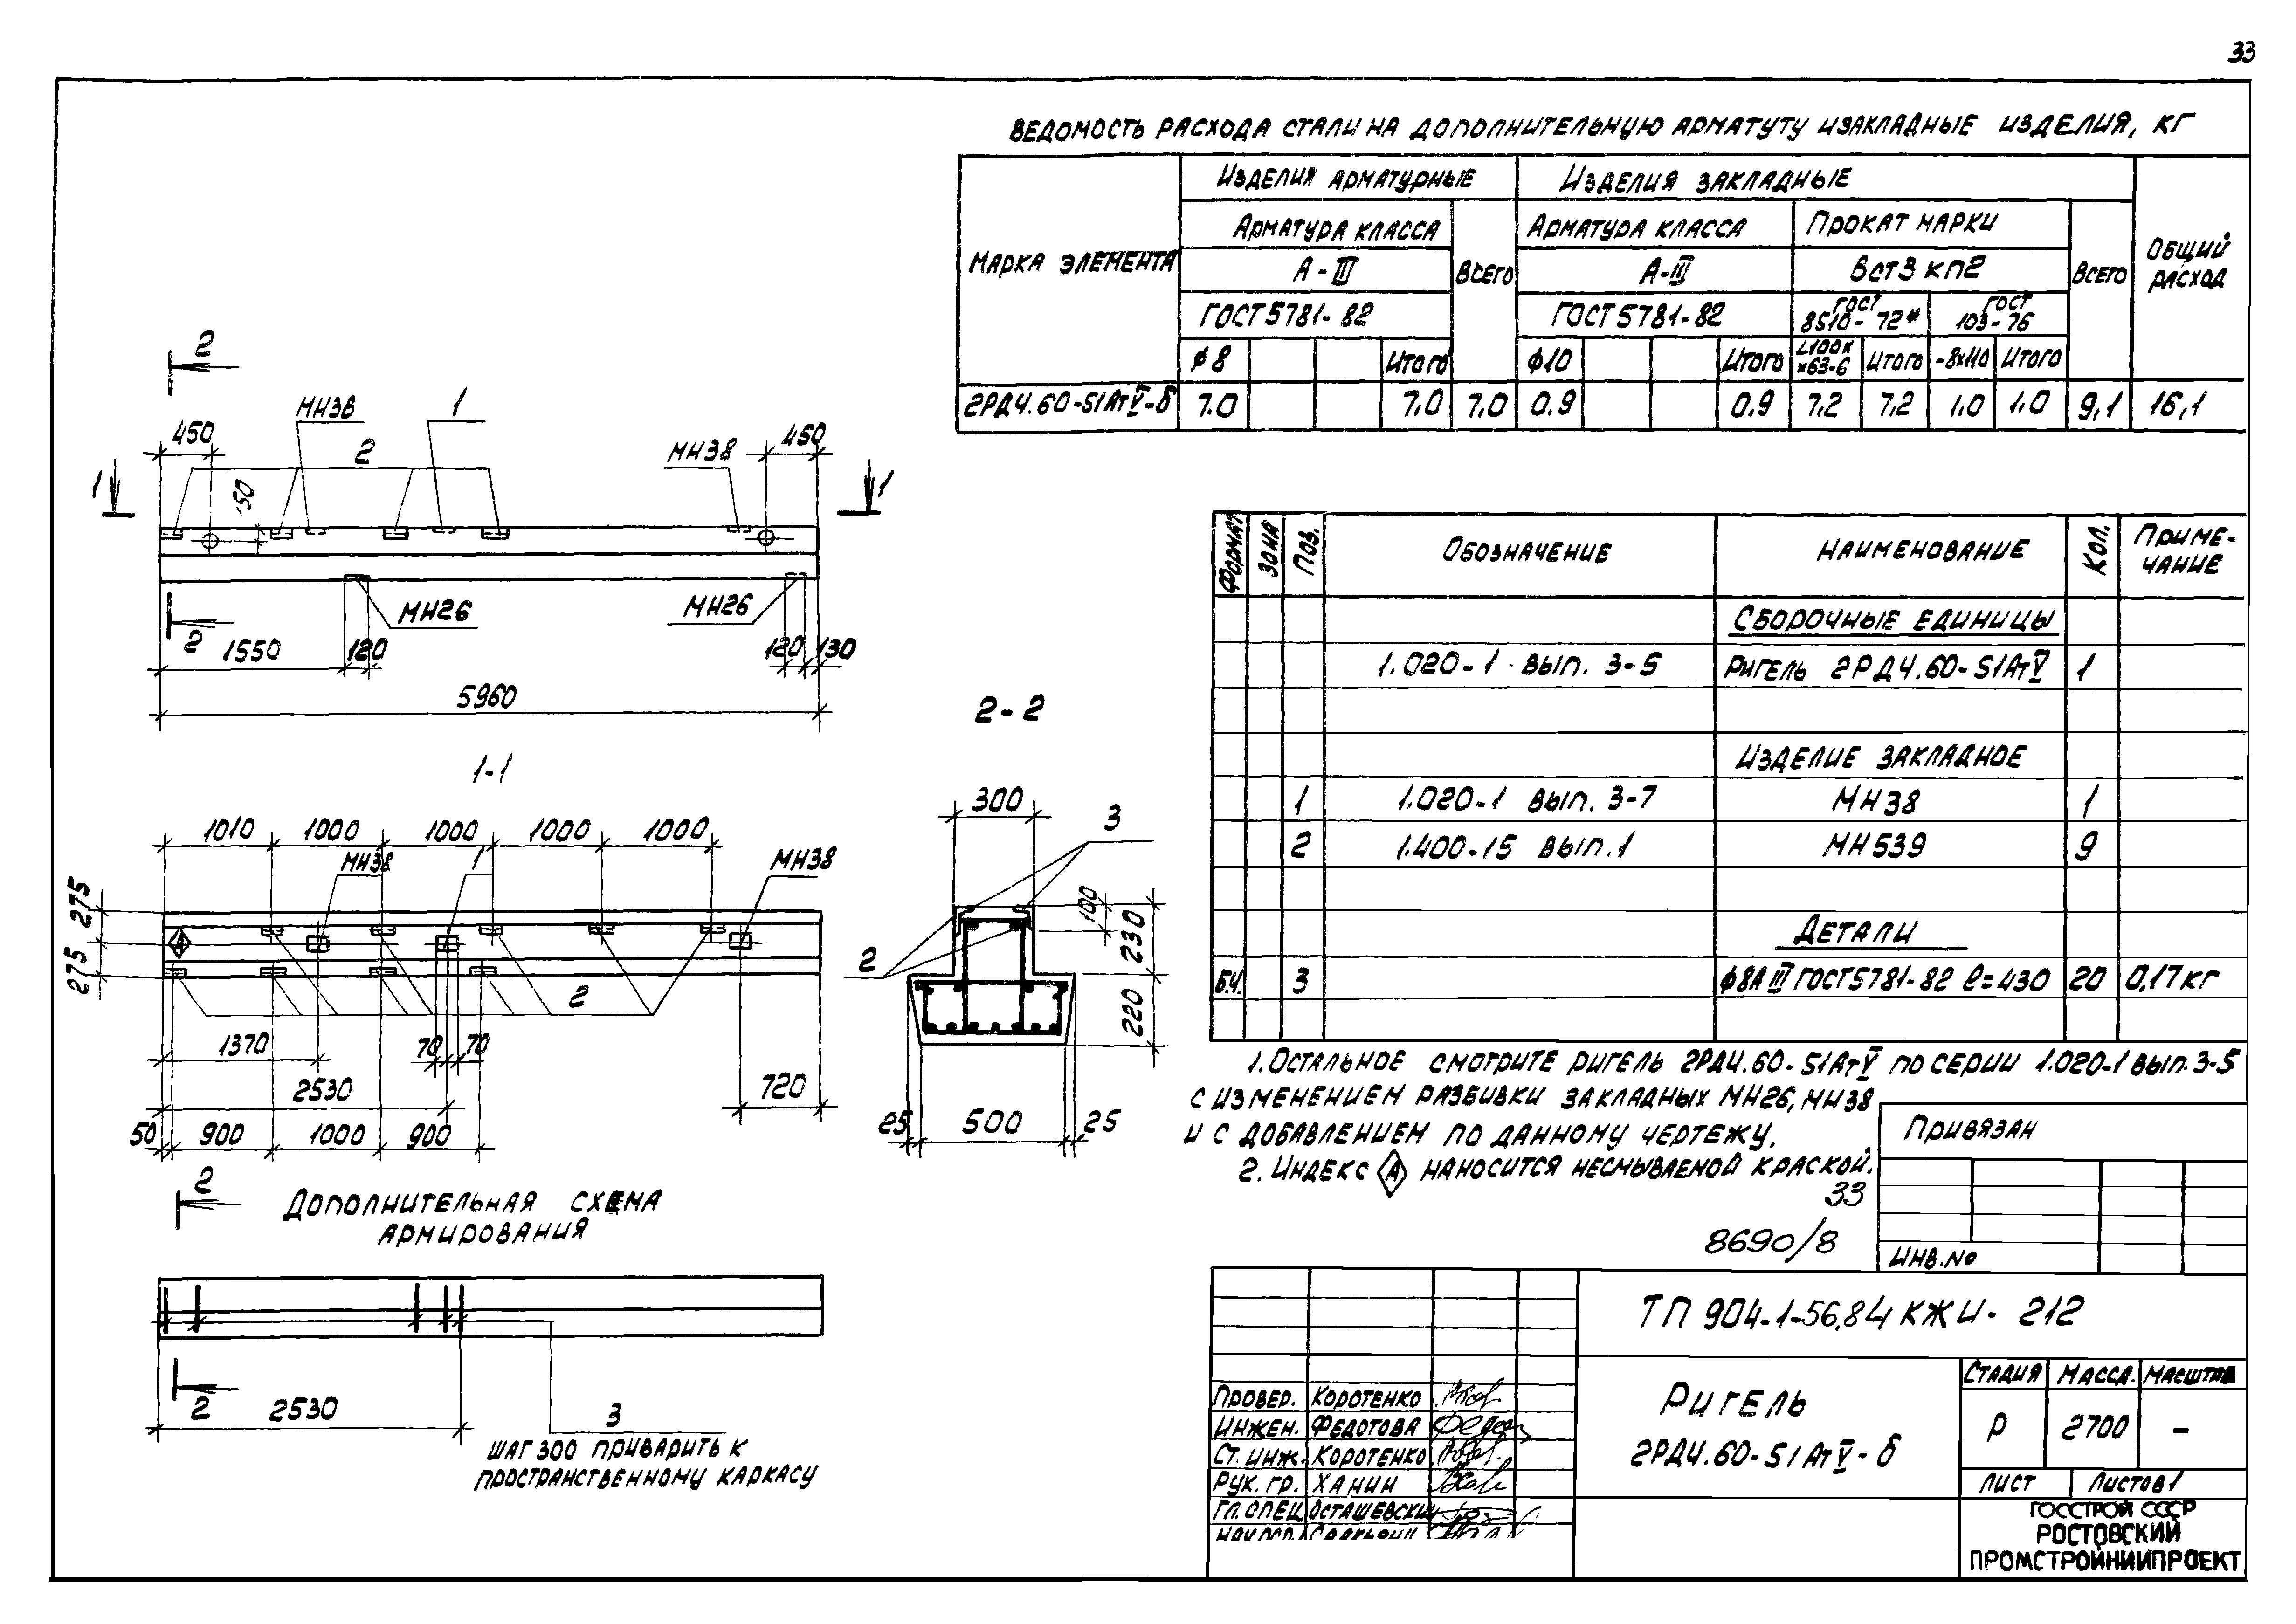 33
ВЕДОМОСТЬ РАСХОДА СТАЛИ НА ДОПОЛНИТЕЛЬНУЮ АРМАТУТУ ИЗАКЛАДНЫЕ ИЗДЕЛИЯ, КГ
МАРКА ЭЛЕМЕНТА
ИЗДЕЛИЯ АРМАТУРНЫЕ
ИЗДЕЛИЯ ЗАКЛАДНЫЕ
ОБЩИЙ РАСХОД
АРМАТУРА КЛАССА
ВСЕГО
АРМАТУРА КЛАССА
ПРОКАТ МАРКИ
ВСЕГО
А-III
А-III
ВСТ3 КП2
ГОСТ 5781-82
ГОСТ 5781-82
ГОСТ 8510-72*
ГОСТ 103-76
ϕ8
ИТОГО
ϕ10
ИТОГО
L100х х63-6
ИТОГО
-8х110
ИТОГО
2РД4.60-51АтV-б 7.0 7.0 7.0 0.9 0.9 7.2 7.2 1.0 1.0 9,1 16,1
2
МН38
1
450
2
МН38
450
1
1
150
МН26
МН26
2
1550
120
120
130
5960
1-1
1010
1000
1000
1000
1000
МН38
1
МН38
275
275
А
2
1370
70
70
2530
720
50
900
1000
900
2
2-2
300
3
100
230
2
220
25
500
25
ДОПОЛНИТЕЛЬНАЯ СХЕМА
АРМИРОВАНИЯ
2
2530
3
ШАГ 300 ПРИВАРИТЬ К
ПРОСТРАНСТВЕННОМУ КАРКАСУ
ФОРМАТ
ЗОНА
ПОЗ.
ОБОЗНАЧЕНИЕ
НАИМЕНОВАНИЕ
КОЛ.
ПРИМЕ-
ЧАНИЕ
СБОРОЧНЫЕ ЕДИНИЦЫ
1.020-1 ВЫП. 3-5 РИГЕЛЬ 2РД4.60-51АтV 1
ИЗДЕЛИЕ ЗАКЛАДНОЕ
1 1.020-1 ВЫП. 3-7 МН38 1
2 1.400-15 ВЫП.1 МН539 9
ДЕТАЛИ
Б.Ч. 3 ϕ8АIII ГОСТ5781-82 ℓ=430 20 0,17кг
1. ОСТАЛЬНОЕ СМОТРИТЕ РИГЕЛЬ 2РД4.60-51АтV ПО СЕРИИ 1.020-1 ВЫП.3-5
С ИЗМЕНЕНИЕМ РАЗБИВКИ ЗАКЛАДНЫХ МН26, МН38
И С ДОБАВЛЕНИЕМ ПО ДАННОМУ ЧЕРТЕЖУ.
2. ИНДЕКС А НАНОСИТСЯ НЕСМЫВАЕМОЙ КРАСКОЙ.
33
8690/8
ПРИВЯЗАН
ИНВ.№
ТП 904-1-56.84 КЖИ-212
ПРОВЕР. КОРОТЕНКО
ИНЖЕН. ФЕДОТОВА
СТ. ИНЖ. КОРОТЕНКО
РУК. ГР. ХАНИН
ГЛ.СПЕЦ ОСТАШЕВСКИ
РИГЕЛЬ
2РД4.60-51АтV-б
СТАДИЯ МАССА МАСШТАБ
Р 2700 –
ЛИСТ ЛИСТОВ 1
ГОССТРОЙ СССР
РОСТОВСКИЙ
ПРОМСТРОЙНИИПРОЕКТ